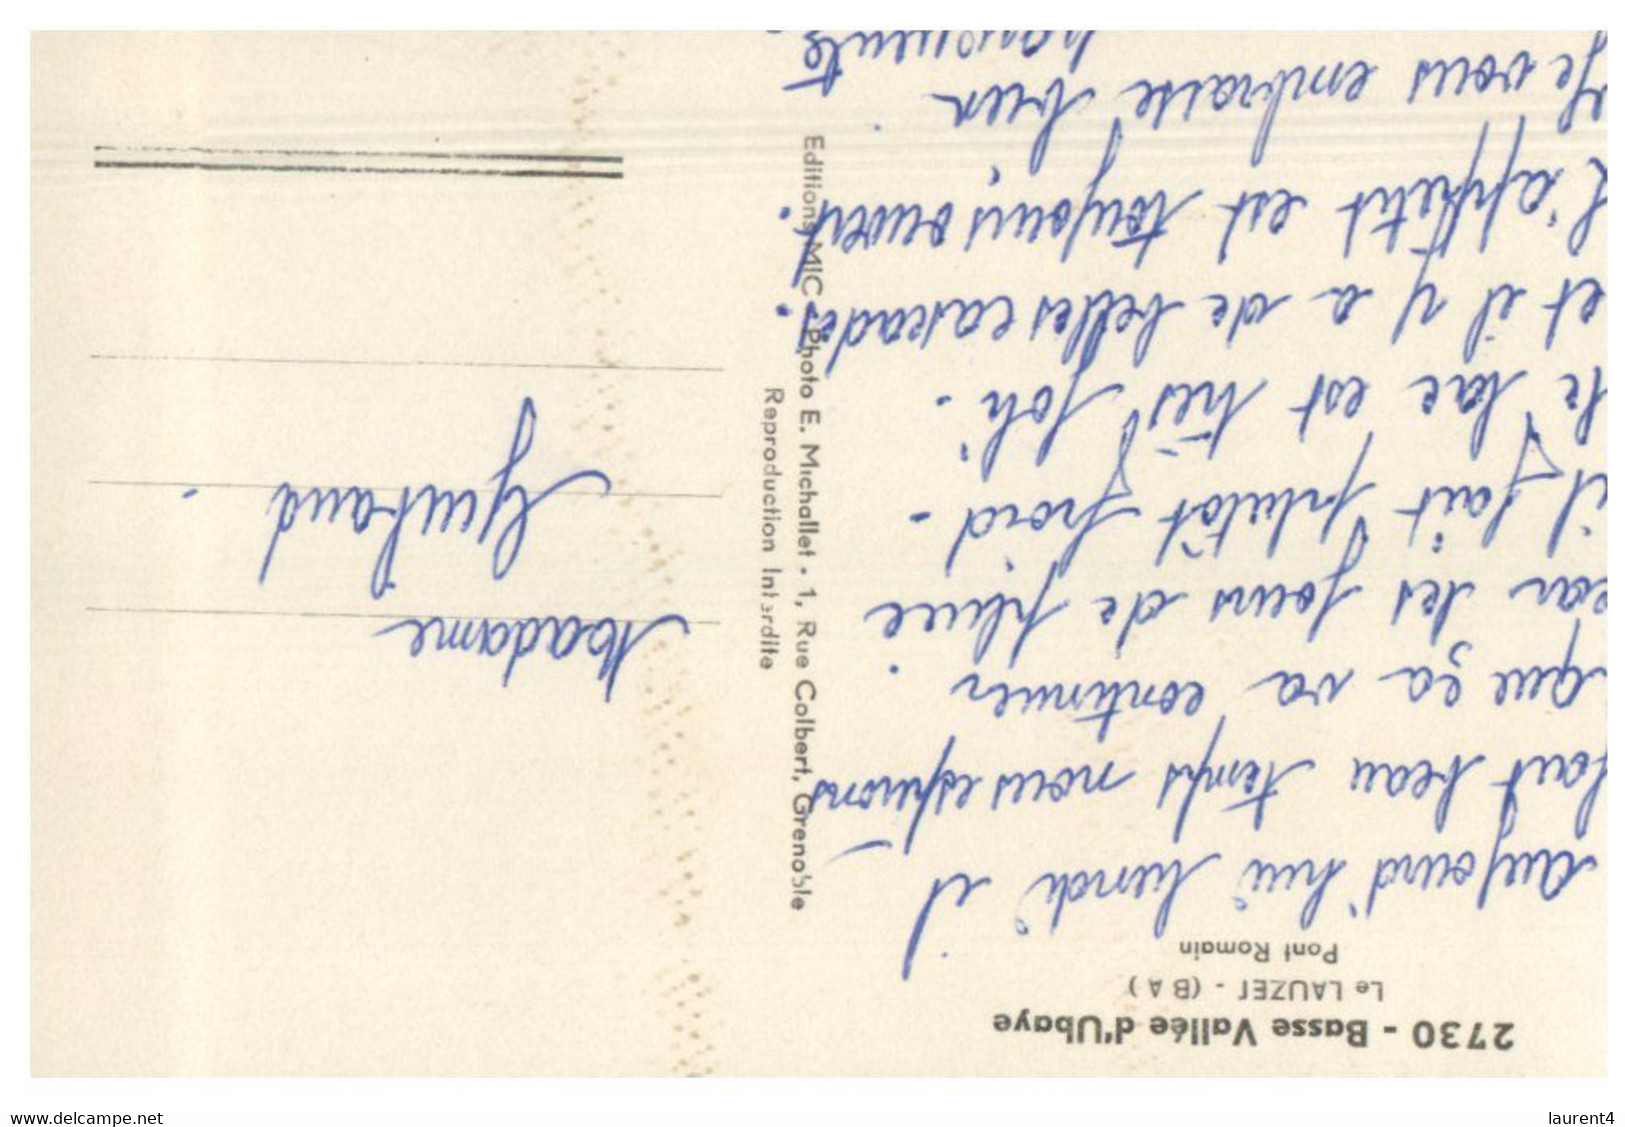 2730 - Basse Vallée d'Ubaye
Le LAUZET - (B A)
Pont Romain
aujourd'hui lundi il
fait beau temps nous espérons
que ça va continuer
car les jours de pluie
il fait plutôt froid -
Le lac est très joli.
et il y a de belles cascades.
L'appetit est toujours ouvert.
Je vous embrasse bien
Editions MIC - Photo E. Michallet - 1, Rue Colbert, Grenoble
Reproduction Interdite
Madame
delcampe.net
laurent4